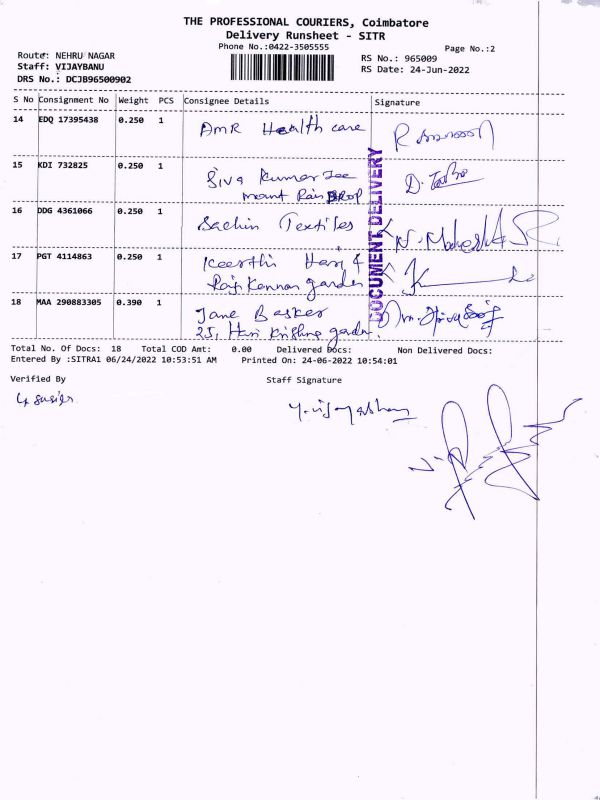 THE PROFESSIONAL COURIERS, Coimbatore
Delivery Runsheet - SITR
Phone No.:0422-3505555
Page No.:2
Route: NEHRU NAGAR
RS No.: 965009
Staff: VIJAYBANU
RS Date: 24-Jun-2022
DRS No.: DCJB96500902
S No Consignment No Weight PCS Consignee Details Signature
14 EDQ 17395438 0.250 1 AMR Health care
15 KDI 732825 0.250 1 Siva Kumar Jee
mount Rain DROP
16 DDG 4361066 0.250 1 Sachin Textiles
17 PGT 4114863 0.250 1 Keerthi Hari
Raj Kannan garden
18 MAA 290883305 0.390 1 Jane Basker
25, Hari Krishna garden.
DOCUMENT DELIVERY
Total No. Of Docs: 18 Total COD Amt: 0.00 Delivered Docs: Non Delivered Docs:
Entered By :SITRA1 06/24/2022 10:53:51 AM Printed On: 24-06-2022 10:54:01
Verified By Staff Signature